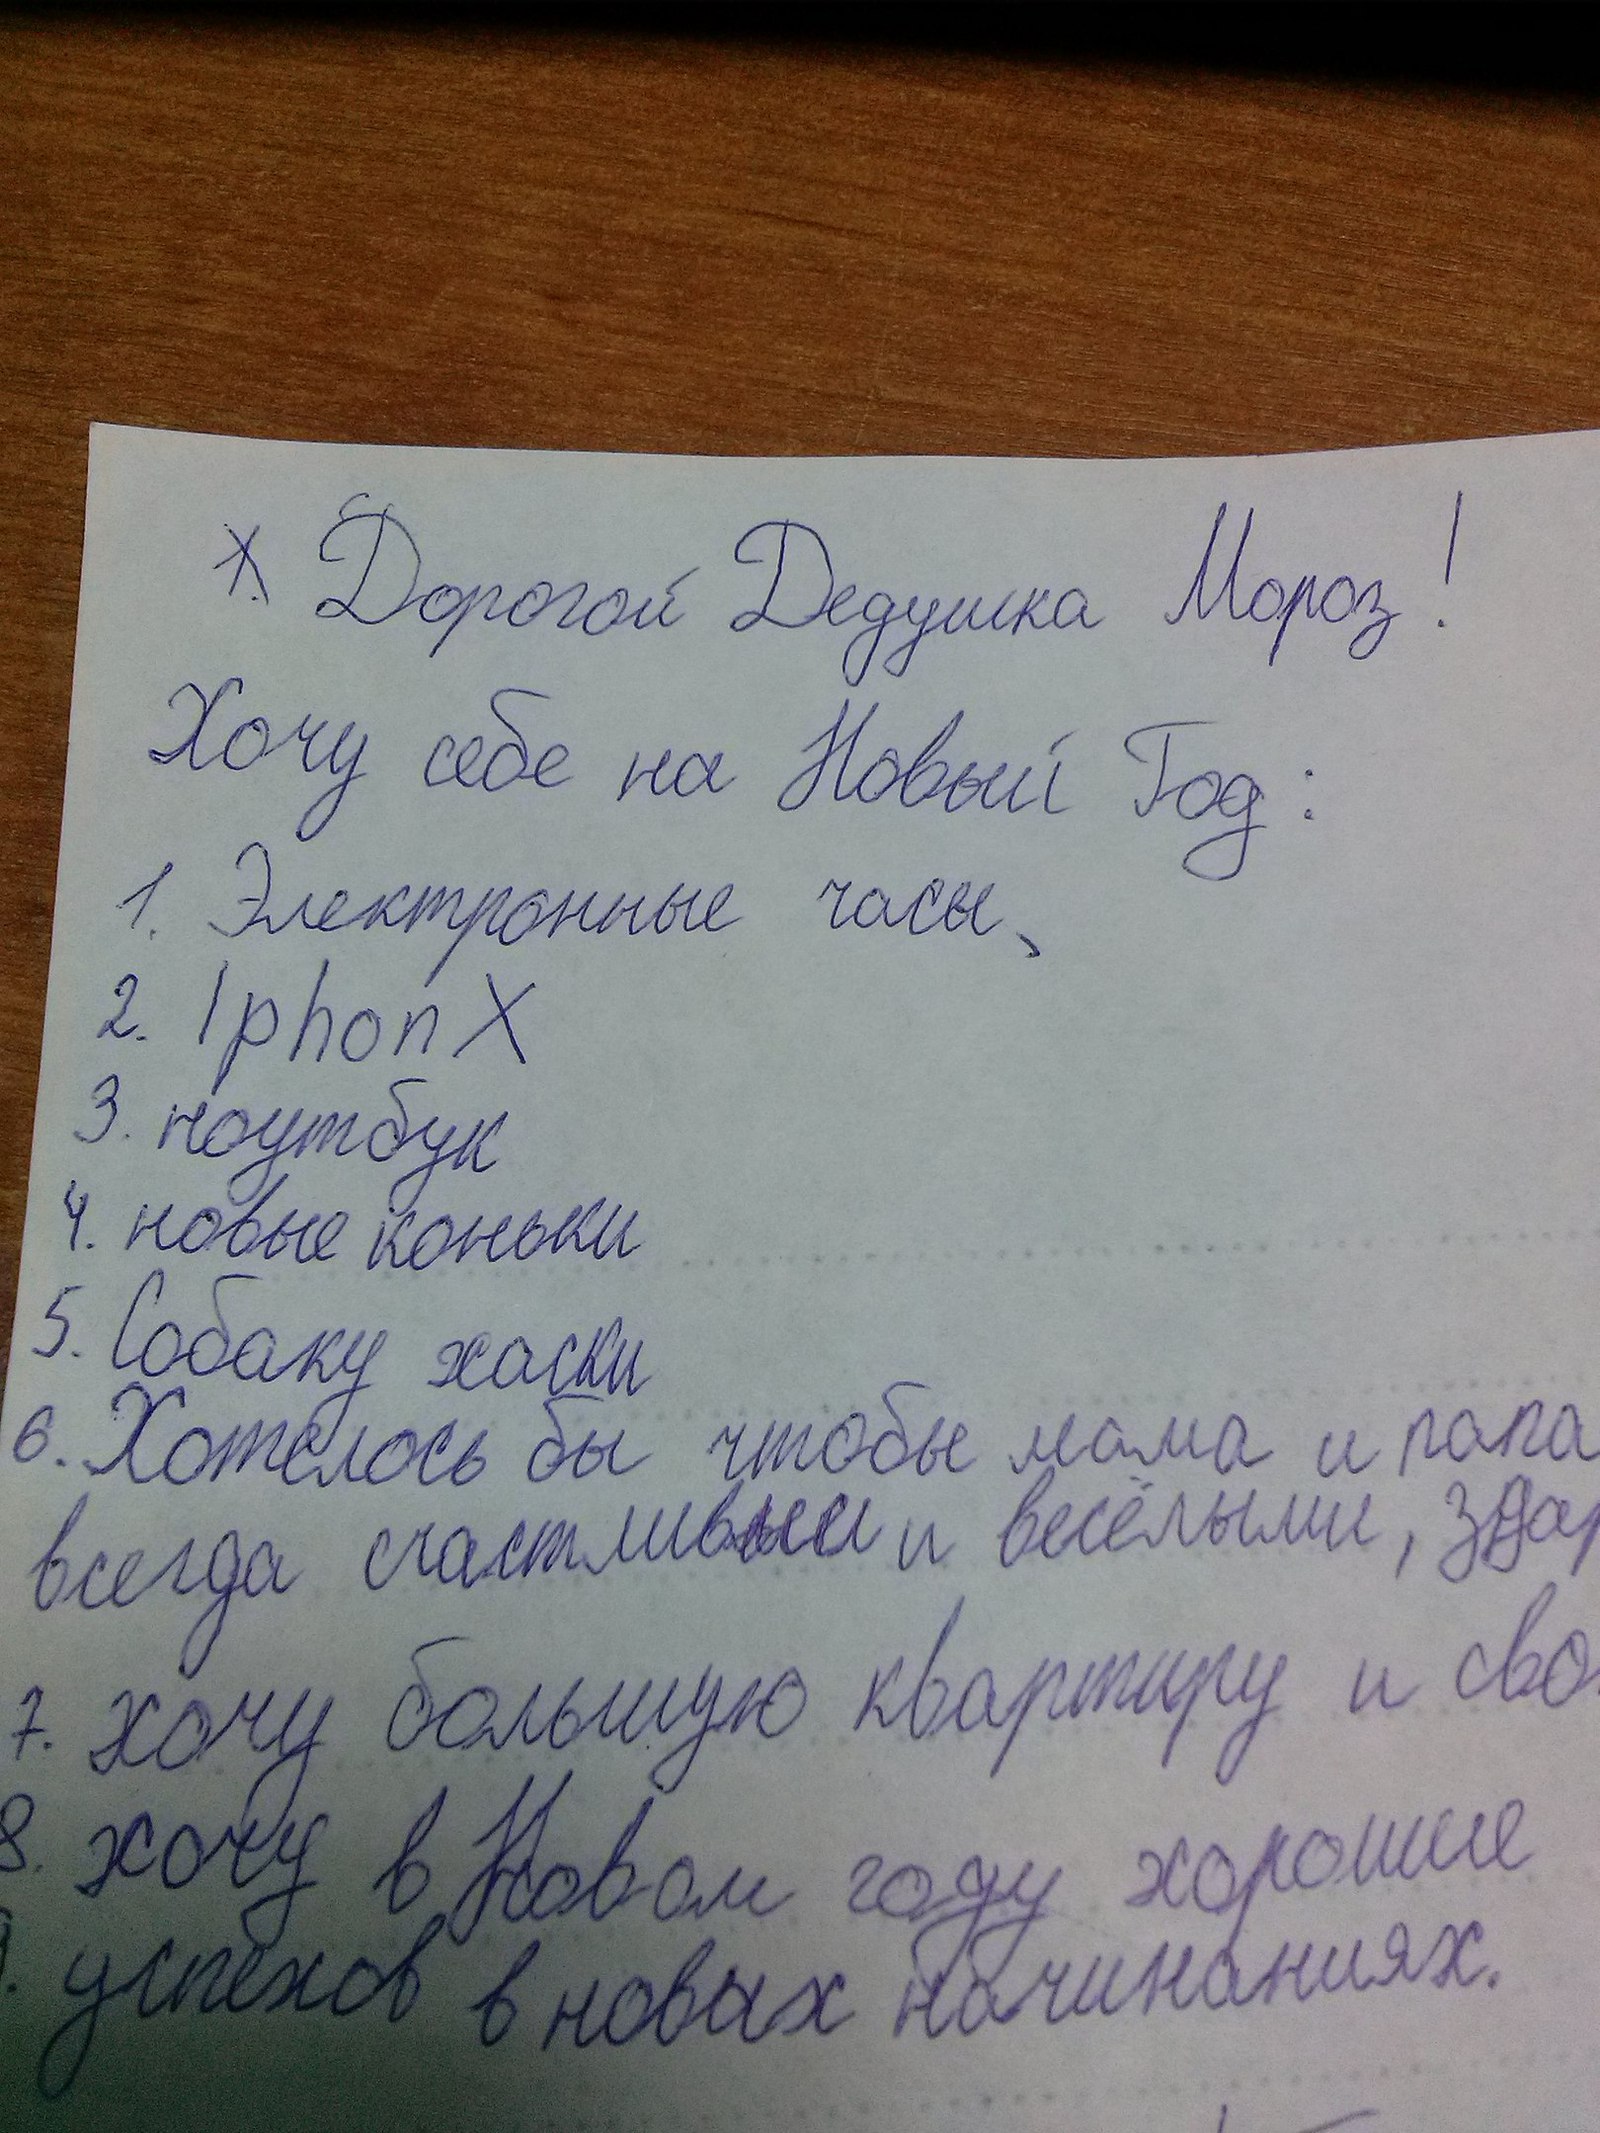 Х. Дорогой Дедушка Мороз!
Хочу себе на Новый Год:
1. Электронные часы,
2. Iphon X
3. ноутбук
4. новые коньки
5. Собаку хаски
6. Хотелось бы чтобы мама и папа
всегда и весёлыми,
7. хочу большую квартиру и сво
8. хочу в Новом году хорошие
успехов в новых начинаниях.